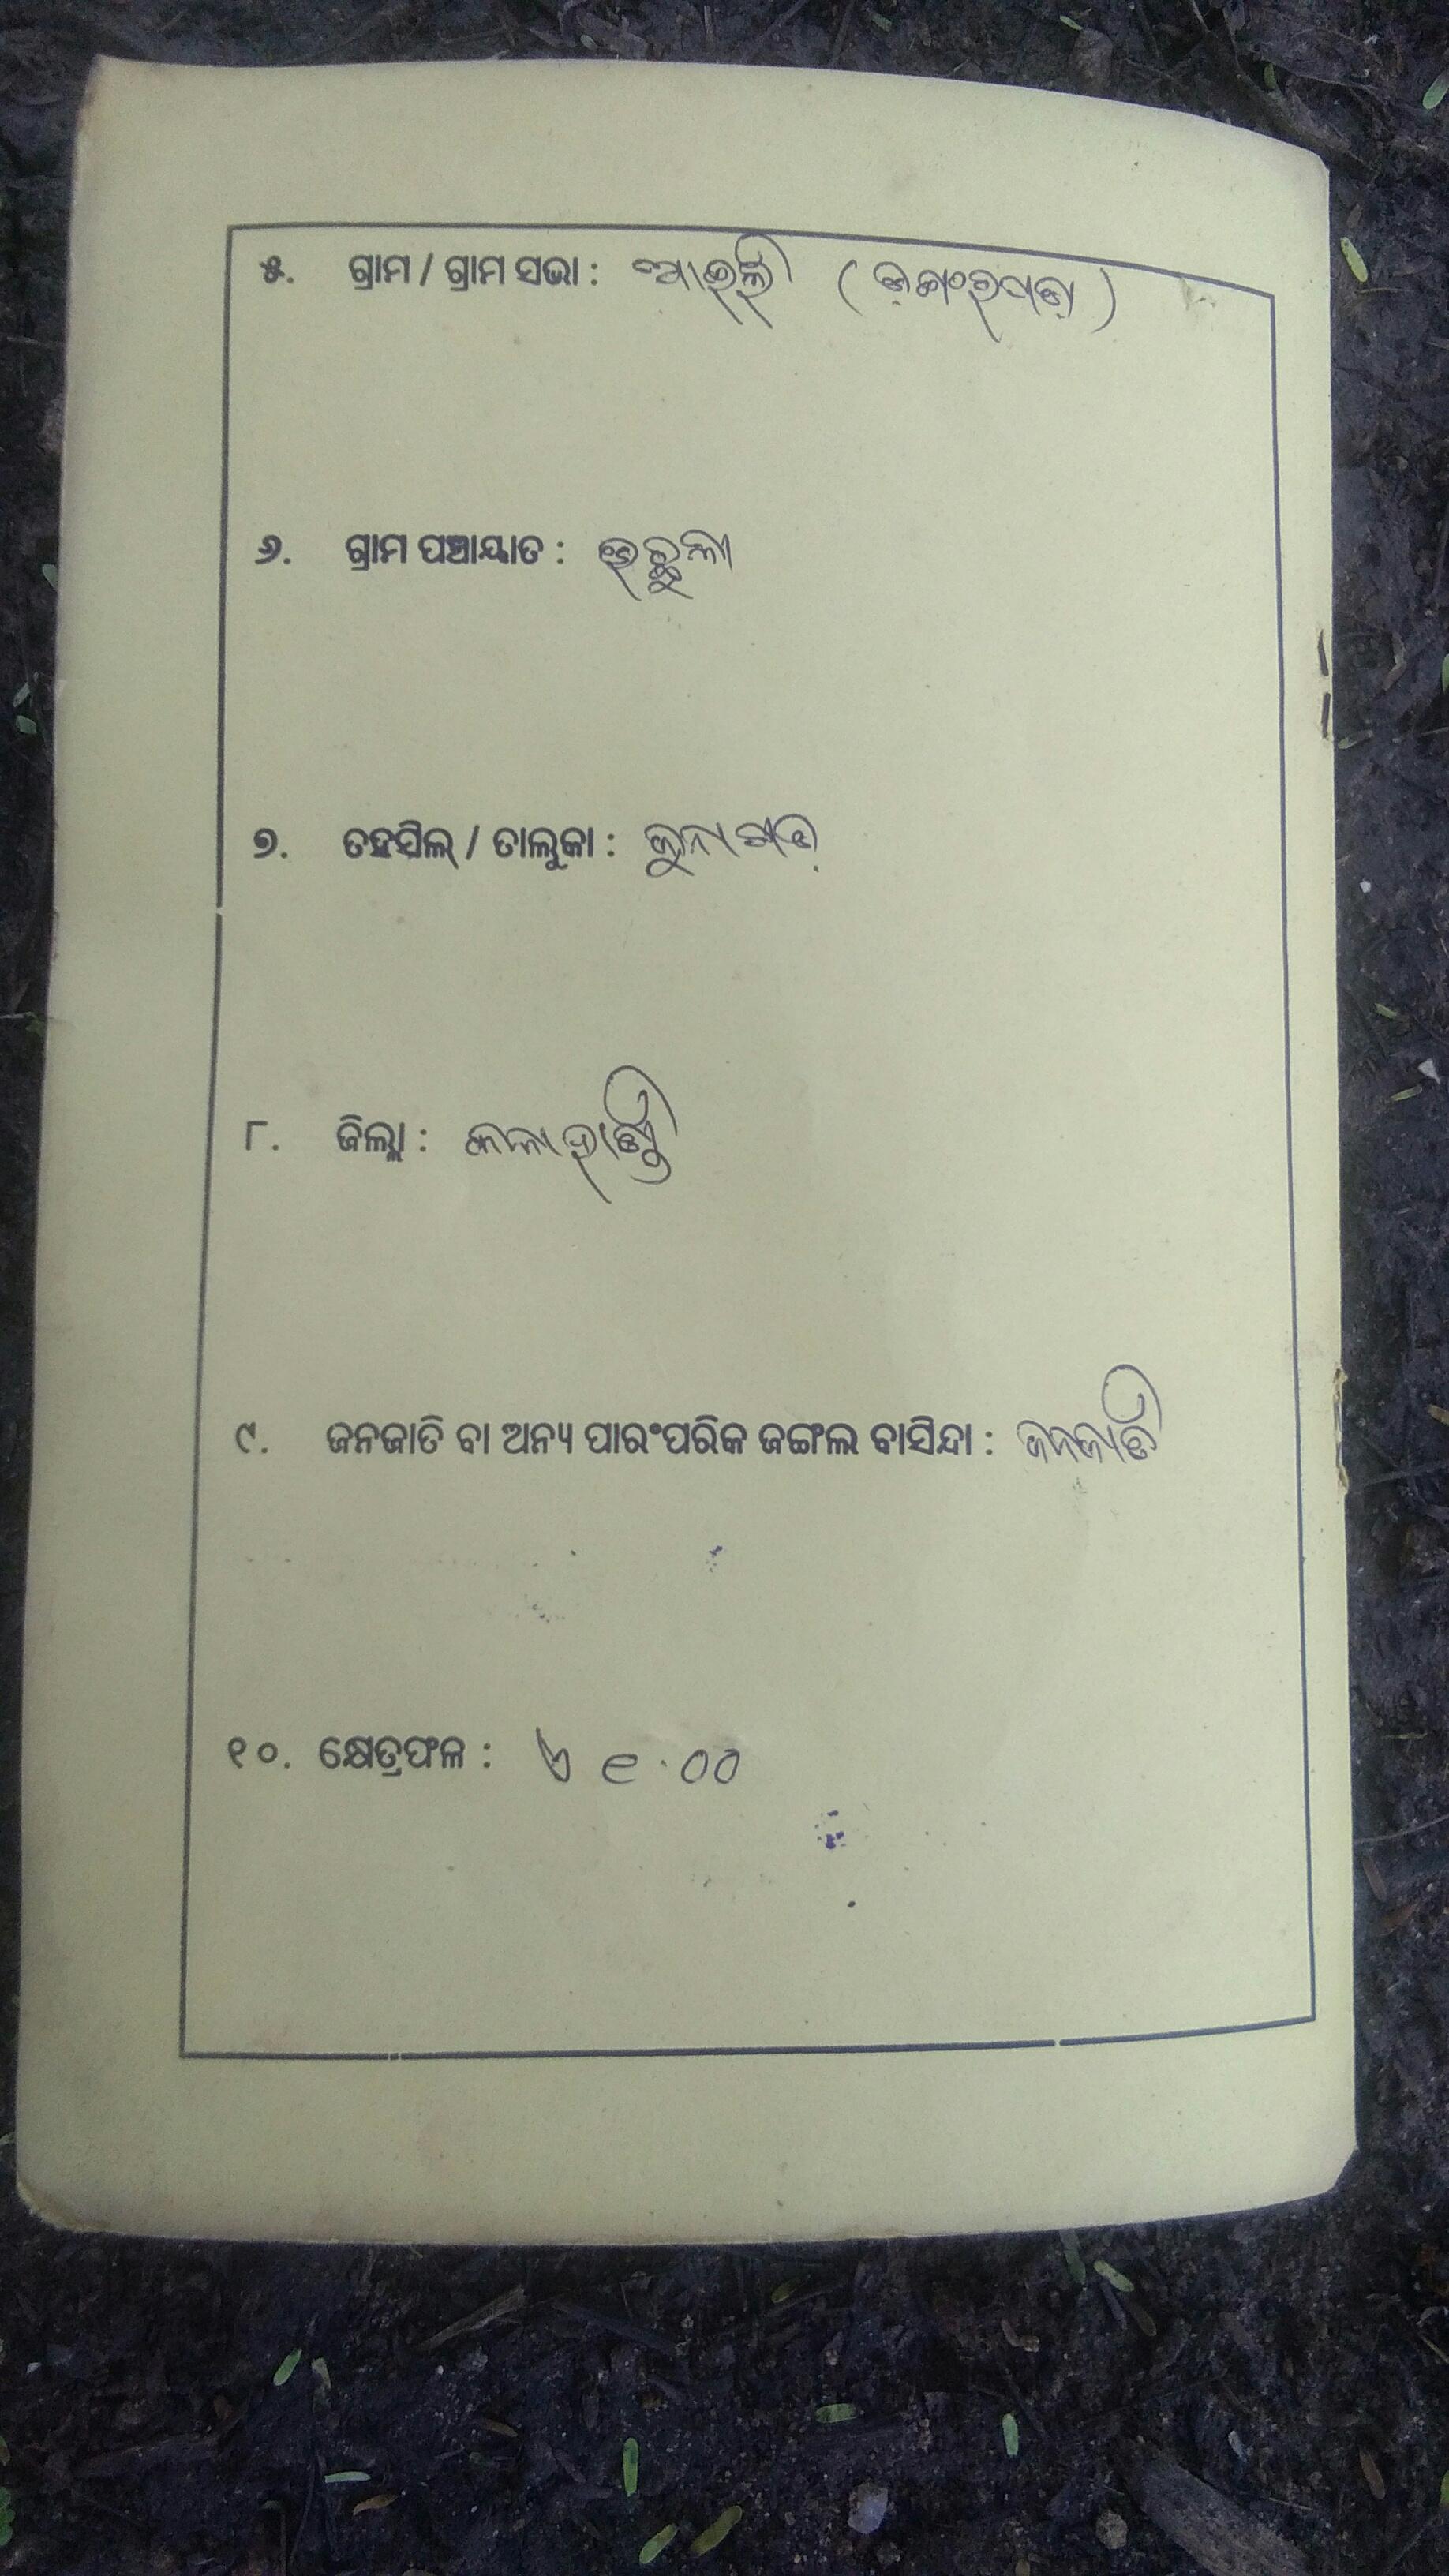 ୫. ଗ୍ରାମ / ଗ୍ରାମ ସଭା :
୬. ଗ୍ରାମ ପଞ୍ଚାୟାତ :
୭. ତହସିଲ୍ / ତାଲୁକା : ଜୁନାଗଡ଼
୮. ଜିଲ୍ଲା : କଳାହାଣ୍ଡି
୯. ଜନଜାତି ବା ଅନ୍ୟ ପାରଂପରିକ ଜଙ୍ଗଲ ବାସିନ୍ଦା : ଜନଜାତି
୧୦. କ୍ଷେତ୍ରଫଳ : ଏ ୧.୦୦